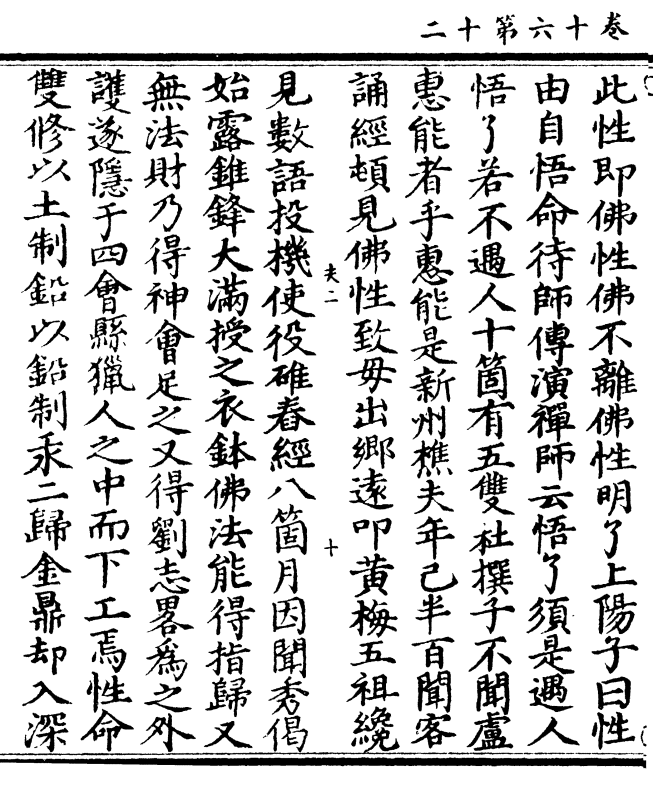 卷十六第十二
此性即佛性佛不離佛性明了上陽子曰性
由自悟命待師傳演禪師云悟了須是遇人
悟了若不遇人十箇有五雙杜撰子不聞盧
惠能者乎惠能是新州樵夫年已半百聞客
誦經頓見佛性致母出鄉遠叩黄梅五祖纔
夫二
十
見數語投機使役碓舂經八箇月因聞秀偈
始露錐鋒大滿授之衣鉢佛法能得指歸又
無法財乃得神會足之又得劉志畧爲之外
護遂隱于四會縣獵人之中而下工焉性命
雙修以土制鉛以鉛制汞二歸金鼎却入深